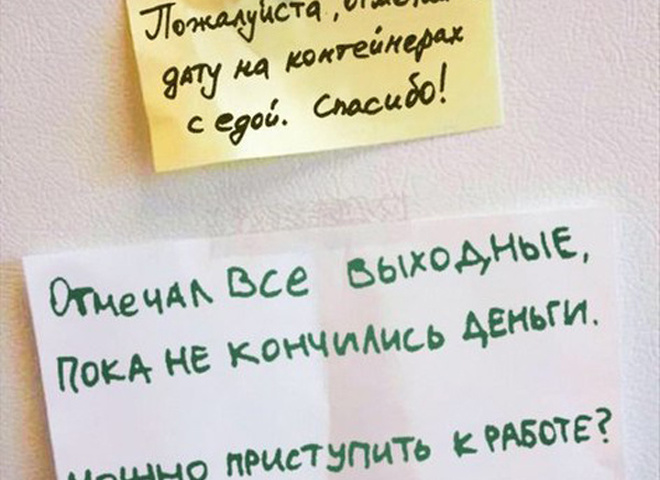 Пожалуйста, отмечай
дату на контейнерах
с едой. Спасибо!
Отмечал все выходные,
пока не кончились деньги.
можно приступить к работе?